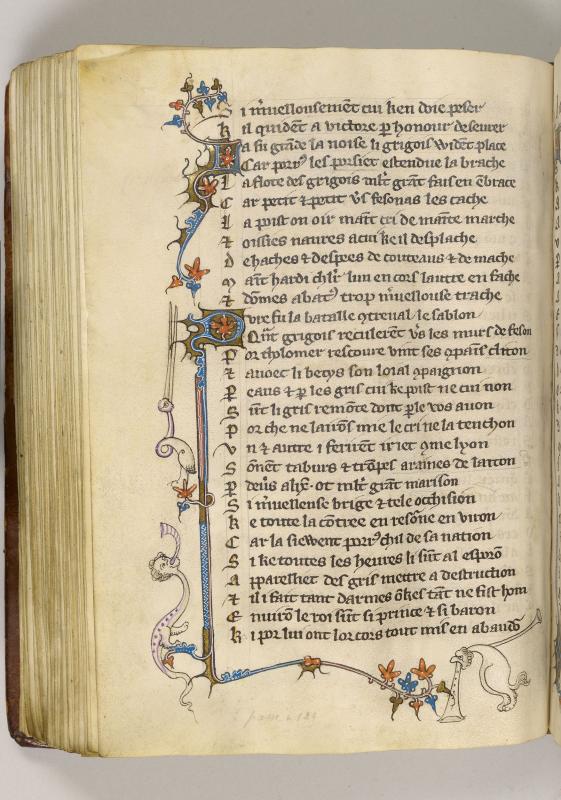 S i m̃uellousemẽt cui ken doie peser
K il quidẽt a victore ꝑ honour deseurer
L a fu grãde la noise li grigois widẽt place
Car porrꝰ les porsiet estendue la brache
L a flote des grigois ml̃t grãt fais en ẽbrace
C ar petit ⁊ petit ṽs fesonas les cache
L a poist on oir maĩt cri de mãte marche
⁊ oissies naures a cui keil desplache
D e haches ⁊ despees de couteaus ⁊ de mache
M aĩt hardi chl̃r lun en cors lautre en fache
⁊ dõmes abatꝰ trop m̃uellouse trache
D ure fu la batalle ꝯtreual le sablon
Qũt grigois reculerẽt ṽs les murs de feson
P or chylomer rescoure vint ses ꝯpaĩs cliton
⁊ auoec li betys son loial ꝯpaignon
P eaus ⁊ ꝑ les gris cui ke poist ne cui non
S ũt li gris remõte dont ꝑle vos auon
P or che ne lairõs mie le cri ne la tenchon
V n ⁊ autre i ferirẽt iriet ꝯme lyon
S onẽt taburs ⁊ trõpes araĩnes de laiton
P deũs alix̃. ot ml̃t grãt marison
S i m̃uellense brige ⁊ tele occhision
K e toute la cõtree en resõne en viron
C ar la siewent porrꝰ chil de sa nation
S i ke toutes les heures li sũt al esporõ
A pparelliet des gris mettre a destruction
⁊ il i fait tant darmes õkes tãt ne fist hom
E nuirõ le roi sũt si prince ⁊ si baron
K i por lui ont lor cors tout mis en abandõ